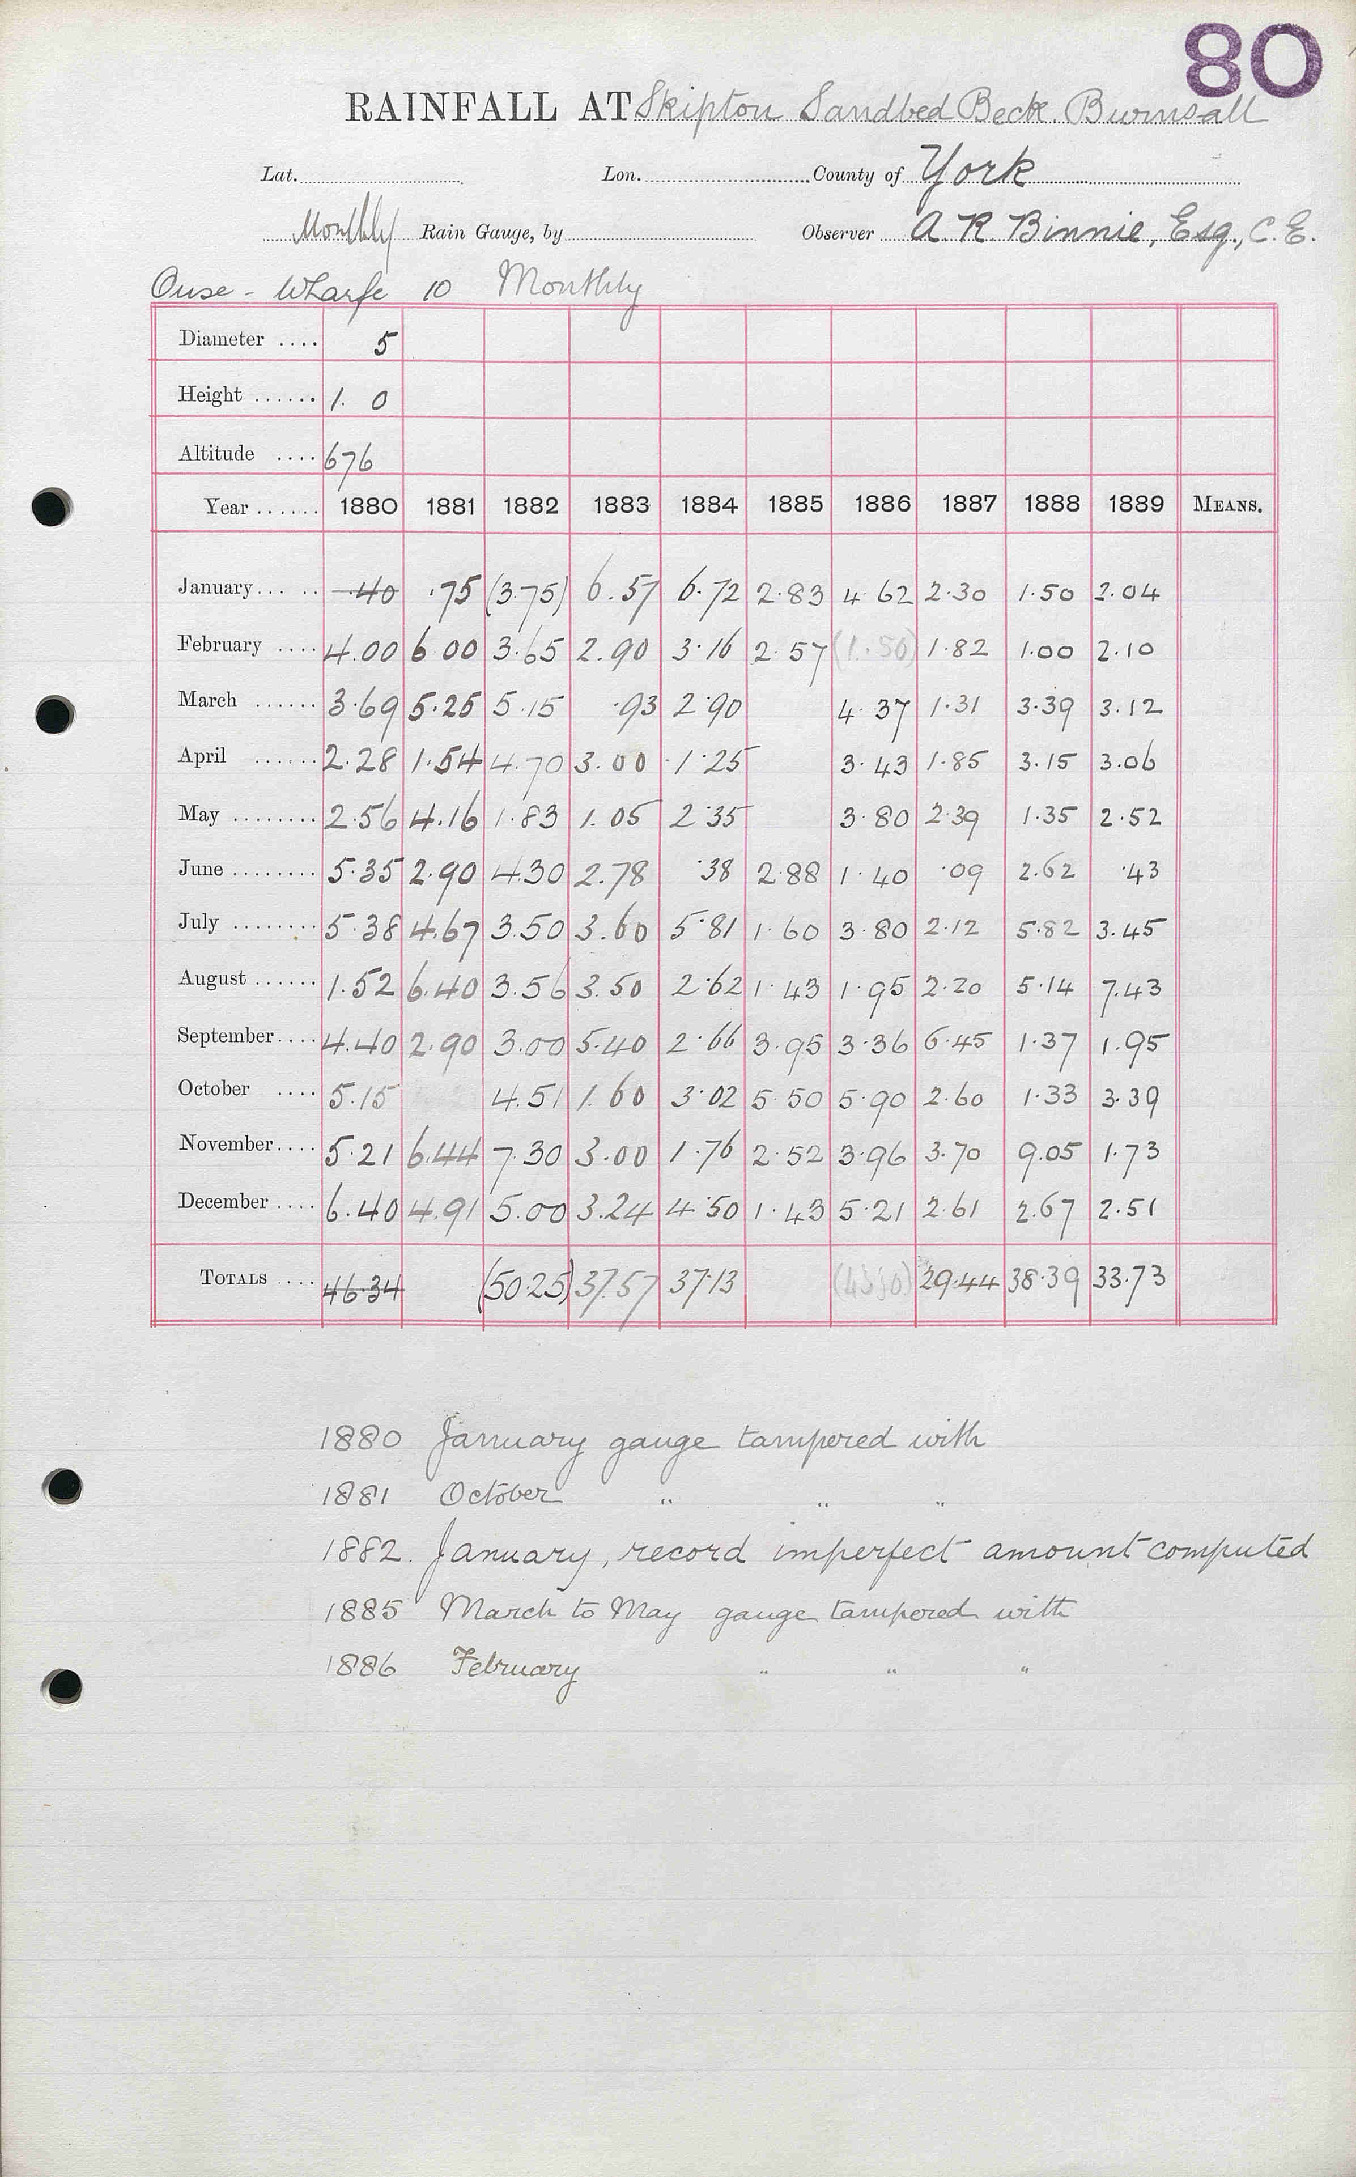 80
RAINFALL AT Skipton Sandbed Beck. Burnsall
Lat. Lon. County of York
Monthly Rain Gauge, by Observer A R Binnie, Esq., C.E.
Ouse - Wharfe 10 Monthly
Diameter .... 5
Height ...... 1. 0
Altitude .... 676
Year ...... 1880 1881 1882 1883 1884 1885 1886 1887 1888 1889 MEANS.
January ..... .40 .75 (3.75) 6.57 6.72 2.83 4.62 2.30 1.50 2.04
February .... 4.00 6.00 3.65 2.90 3.16 2.57 (1.50) 1.82 1.00 2.10
March ...... 3.69 5.25 5.15 .93 2.90 4.37 1.31 3.39 3.12
April ...... 2.28 1.54 4.70 3.00 1.25 3.43 1.85 3.15 3.06
May ........ 2.56 4.16 1.83 1.05 2.35 3.80 2.39 1.35 2.52
June ........ 5.35 2.90 4.30 2.78 .38 2.88 1.40 .09 2.62 .43
July ........ 5.38 4.67 3.50 3.60 5.81 1.60 3.80 2.12 5.82 3.45
August ...... 1.52 6.40 3.56 3.50 2.62 1.43 1.95 2.20 5.14 7.43
September .... 4.40 2.90 3.00 5.40 2.66 3.95 3.36 6.45 1.37 1.95
October .... 5.15 4.51 1.60 3.02 5.50 5.90 2.60 1.33 3.39
November .... 5.21 6.44 7.30 3.00 1.76 2.52 3.96 3.70 9.05 1.73
December .... 6.40 4.91 5.00 3.24 4.50 1.43 5.21 2.61 2.67 2.51
TOTALS .... 46.34 (50.25) 37.57 37.13 29.44 38.39 33.73
1880 January gauge tampered with
1881 October " " "
1882. January, record imperfect amount computed
1885 March to May gauge tampered with
1886 February " " "